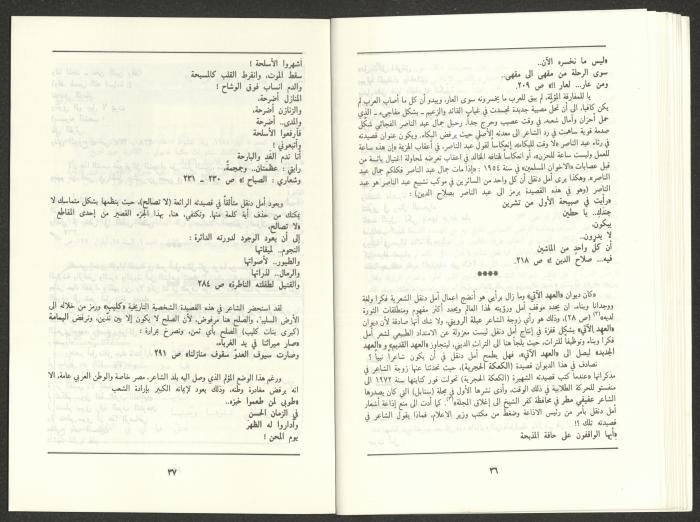 «ليس ما نخسره الآن..
سوى الرحلة من مقهى الى مقهى..
ومن عار.. لعار !!» ص ٢٠٩.
يا للمفارقة المؤلة، لم يبق للعرب ما يخسرونه سوى العار، ويبدو أن كل ما أصاب العرب لم
يكن كافياً، الى أن تحل مصيبة جديدة تجسدت في غياب القائد والزعيم ــ بشكل مفاجىء ــ الذي
حمل أحزان وآمال شعبه، في وقت عصيب وحرج جداً. رحيل جمال عبد الناصر الفجائي شكّل
صدمة قوية ساهمت في رد الشاعر الى معدنه الأصلي حيث يرفض البكاء. ويكون عنوان قصيدته
في رثاء عبد الناصر «لا وقت للبكاء» إنعكاساً لقول عبد الناصر، في أعقاب الهزيمة «إن هذه ساعة
للعمل وليست ساعة للحزن»، أو انعكاساً لهتافه الخالد في أعقاب تعرضه لمحاولة اغتيال يائسة من
قبل عصابات «الاخوان المسلمين» في سنة ١٩٥٤ : «إذا مات جمال عبد الناصر فكلكم جمال عبد
الناصر». وهكذا يرى أمل دنقل أن كل واحد من السائرين في موكب تشييع عبد الناصر هو عبد
الناصر (وهو في هذه القصيدة يرمز الى عبد الناصر بصلاح الدين) :
«رأيت في صبيحة الأول من تشرين
جندك.. يا حطين
يبكون،
لا يدرون..
أن كل واحدٍ من الماشين
فيه... صلاح الدين !» ص ٢١٨.
****
«كان ديوان «العهد الآتي» وما زال برأيي هو أنضج اعمال أمل دنقل الشعرية فكراً ولغة
ووجداناً وبناء، ان يحدد موقف أمل ورؤيته لهذا العالم ويحدد أكثر مفهوم ومنطلقات الثورة
لديه» (ص ٢٨)، وذلك هو رأي زوجة الشاعر عبلة الرويني، ولا شك أنها صادقة لأن ديوان
«العهد الآتي» يشكل قفزة في إنتاج أمل دنقل ليست معزولة عن الامتداد الطبيعي لشعر أمل
فكراً وبناء وتوظيفاً للتراث، حيث يلجأ هنا الى التراث الديني، ليتجاوز «العهد القديم» و«العهد
الجديد» ليصل الى «العهد الآتي»، فهل يطمح أمل دنقل في أن يكون شاعراً نبياً ؟
نصادف في هذا الديوان قصيدة (الكعكة الحجرية)، حيث تحدثنا عنها زوجة الشاعر في
مذكراتها «عندما كتب قصيدته الشهيرة (الكعكة الحجرية) تحولت فور كتابتها سنة ١٩٧٢ الى
منفستو للحركة الطلابية في ذلك الوقت، وأدى نشرها الأول في مجلة (سنابل) التي كان يصدرها
الشاعر عفيفي مطر في محافظة كفر الشيخ الى إغلاق المجلة». كما أدت الى منع إذاعة أشعار
أمل دنقل بأمر من رئيس الاذاعة وضغط من مكتب وزير الاعلام. فماذا يقول الشاعر في
قصيدته تلك ؟!
«أيها الواقفون على حافة المذبحة
٣٦
أشهروا الأسلحة !
سقط الموت، وانفرط القلب كالمسبحة
والدم انساب فوق الوشاح !
المنازل أضرحة،
والزنازن أضرحة،
والمدى.. أضرحة
فارفعوا الأسلحة
واتبعوني !
أنا ندم الغد والبارحة
رايتي : عظمتان.. وجمجمة،
وشعاري : الصباح !» ص ٢٣٠ ــ ٢٣١
ويعود أمل دنقل متألقاً في قصيدته الرائعة (لا تصالح)، حيث ينظمها بشكل متماسك لا
يمكنك من حذف أية كلمة منها. ونكتفي، هنا، بهذا الجزء القصير من إحدى المقاطع
«لا تصالح،
إلى أن يعود الوجود لدورته الدائرة :
النجوم.. لميقاتها
والطيور.. لأصواتها
والرمال.. لذراتها
والقتيل لطفلته الناظرة» ص ٢٨٤
لقد استحضر الشاعر في هذه القصيدة الشخصية التاريخية «كليب» ورمز من خلاله الى
الأرض السليب، والصلح هنا مرفوض، لأن الصلح لا يكون إلا بين ندّين، وترفض اليمامة
(كبرى بنات كليب) الصلح بأي ثمن، وتصرخ بمرارة :
«صار ميراثنا في يد الغرباء،
وصارت سيوف العدوّ سقوف منازلنا» ص ٢٩١
ورغم هذا الوضع المؤلم الذي وصل اليه بلد الشاعر، مصر خاصة والوطن العربي عامة، الا
انه يرفض مغادرة وطنه، وذلك يعود لإيمانه الكبير بإرادة الشعب
«طوبى لمن طعموا خبزه..
في الزمان الحسن
وأداروا له الظهر
يوم المحن !
٣٧